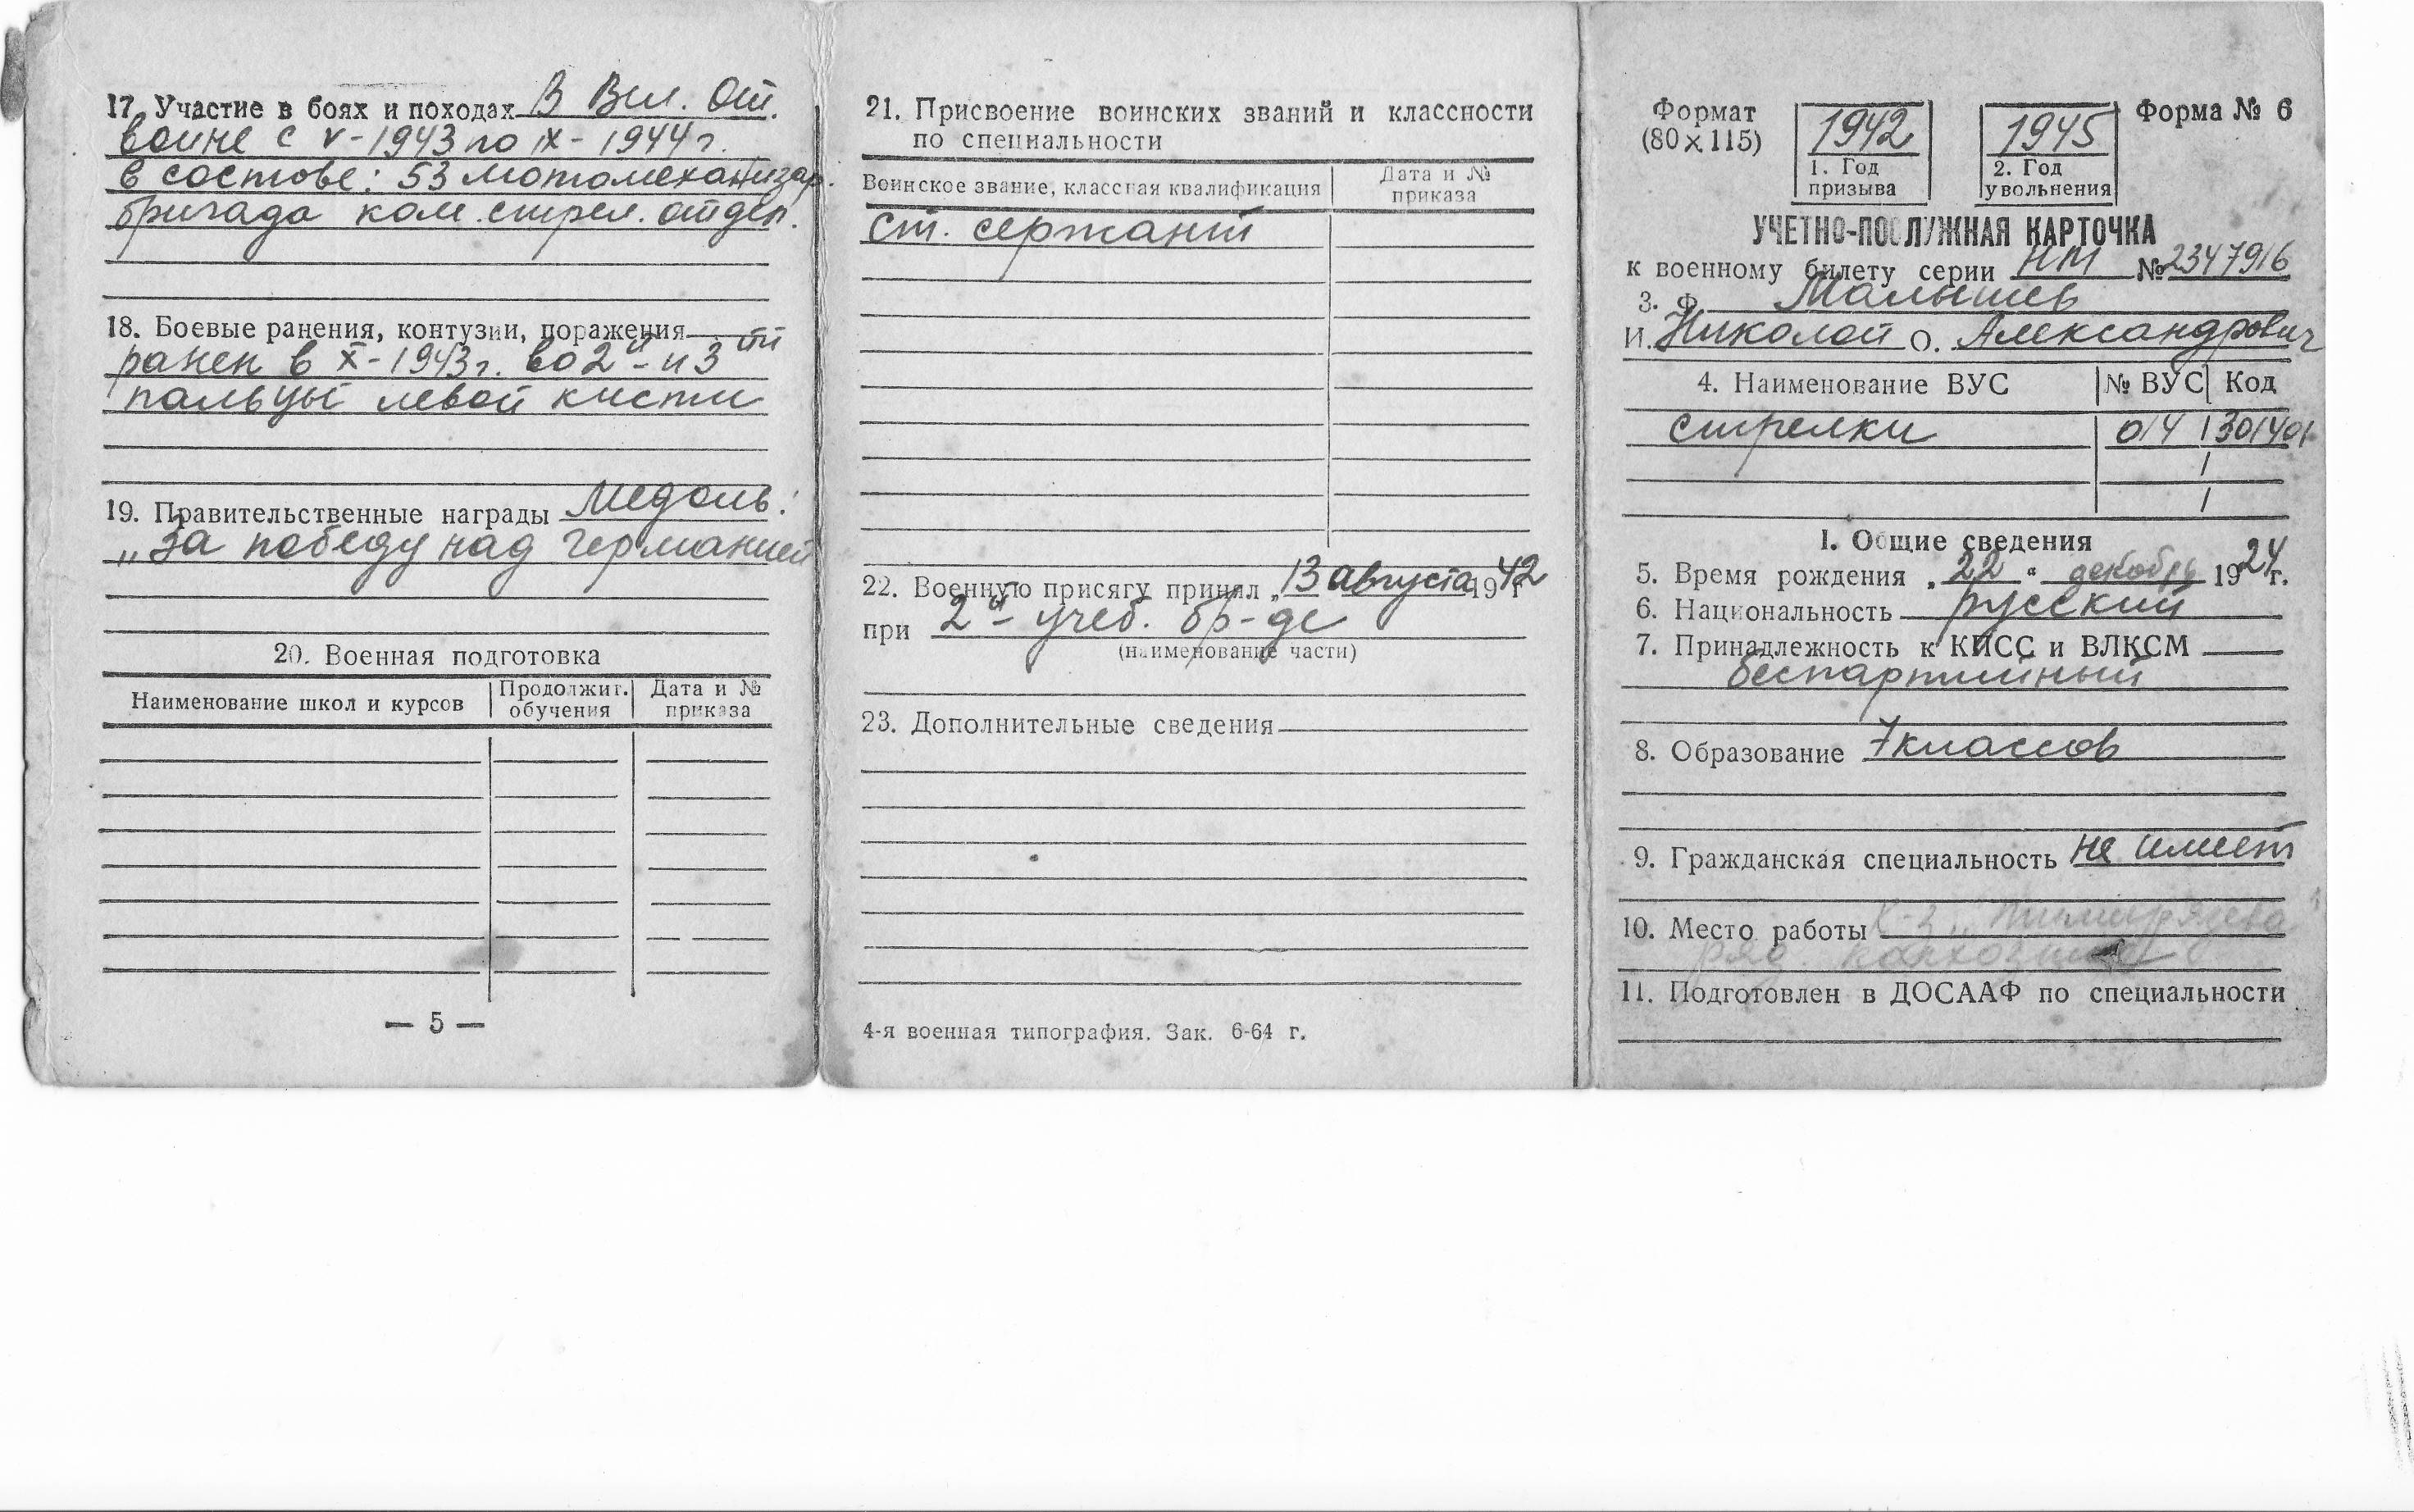 17. Участие в боях и походах В Вел. От.
войне с V-1943 по IX-1944 г.
в составе: 53 мотомеханизар.
бригада ком. стрел. отдел.
18. Боевые ранения, контузии, поражения
ранен в X-1943 г. во 2й и 3ий
пальцы левой кисти
19. Правительственные награды Медаль:
„За победу над Германией
20. Военная подготовка
Наименование школ и курсов Продолжит. обучения Дата и № приказа
— 5 —
21. Присвоение воинских званий и классности
по специальности
Воинское звание, классная квалификация Дата и № приказа
ст. сержант
22. Военную присягу принял „13 августа 1942 г
при 2й учеб. бр-де
(наименование части)
23. Дополнительные сведения
4-я военная типография. Зак. 6-64 г.
Формат
(80×115)
1942
1. Год
призыва
1945
2. Год
увольнения
Форма № 6
УЧЕТНО-ПОСЛУЖНАЯ КАРТОЧКА
к военному билету серии НМ № 2347916
3. Ф. Малышев
И. Николай О. Александрович
4. Наименование ВУС № ВУС Код
стрелки 014
I. Общие сведения
5. Время рождения „22“ декабрь 1924 г.
6. Национальность русский
7. Принадлежность к КПСС и ВЛКСМ
беспартийный
8. Образование 7 классов
9. Гражданская специальность не имеет
10. Место работы к-з „Тимирязева“
ряд. колхозник
11. Подготовлен в ДОСААФ по специальности